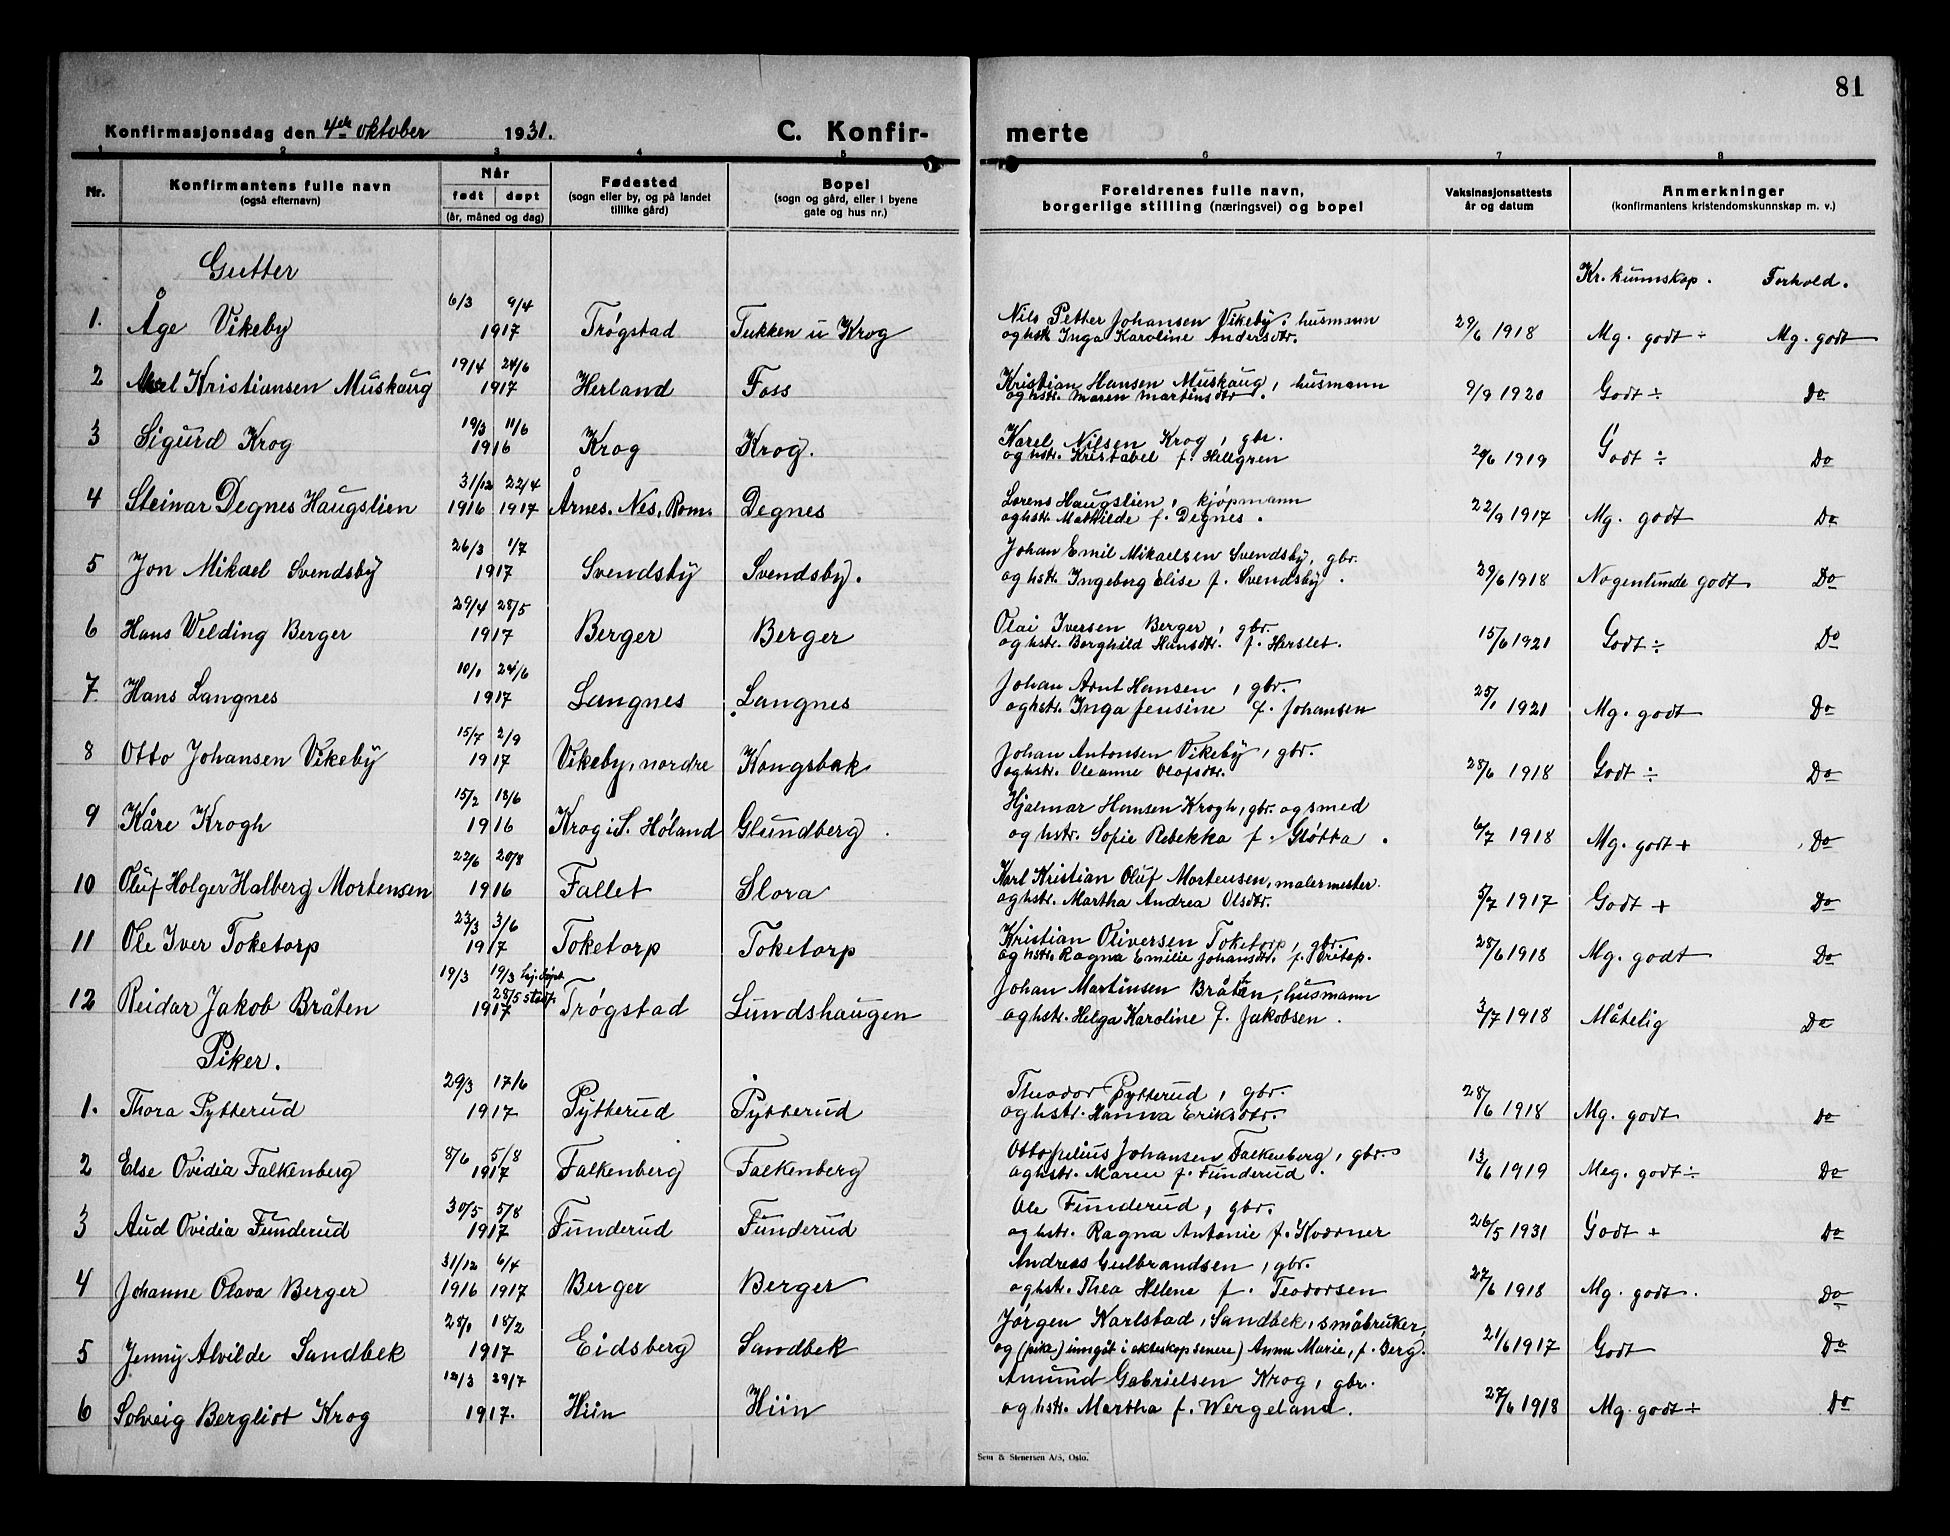 81
Konfirmasjonsdag den 4de oktober 1931. C. Konfir- merte
1 2 3 4 5 6 7 8
Nr. Konfirmantens fulle navn (også efternavn) Når født døpt (år, måned og dag) Fødested (sogn eller by, og på landet tillike gård) Bopel (sogn og gård, eller i byene gate og hus nr.) Foreldrenes fulle navn, borgerlige stilling (næringsvei) og bopel Vaksinasjonsattests år og datum Anmerkninger (konfirmantens kristendomskunnskap m. v.)
Gutter Kr. kunnskap. Forhold.
1. Åge Vikeby 6/3 9/4 1917 Trøgstad Tukken u Krog Nils Petter Johansen Vikeby, husmann
og hstr. Inga Karoline Andersdtr. 29/6 1918 Mg. godt ÷ Mg. godt
2 Kristiansen Muskaug 19/4 24/6 1917 Herland Foss Kristian Hansen Muskaug, husmann
og hstr. Maren Martinsdtr. 9/9 1920 Godt ÷ Do
3 Sigurd Krog 19/3 11/6 1916 Krog Krog. Karel Nilsen Krog, gbr.
og hstr. Kristabel f. Hellgren 29/6 1919 Godt ÷ Do
4 Steinar Degnes Haugslien 31/12 1916 22/4 1917 Årnes. Nes, Rom. Degnes Lorens Haugslien, kjøpmann
og hstr. Mathilde f. Degnes. 22/9 1917 Mg. godt Do
5 Jon Mikael Svendsby 26/3 1/7 1917 Svendsby Svendsby. Johan Emil Mikaelsen Svendsby, gbr.
og hstr. Ingeborg Elise f. Svendsby. 29/6 1918 Nogenlunde godt Do
6 Hans Welding Berger 29/4 28/5 1917 Berger Berger Olai Iversen Berger, gbr.
og hstr. Borghild Hansdtr. f. Herslet. 15/6 1921 Godt ÷ Do
7. Hans Langnes 10/1 24/6 1917 Langnes Langnes Johan Arnt Hansen, gbr.
og hstr. Inga Jensine f. Johansen 25/1 1921 Mg. godt Do
8 Otto Johansen Vikeby 15/7 2/9 1917 Vikeby, nordre Kongsbak Johan Antonsen Vikeby, gbr.
og hstr. Oleanne Olofsdtr. 28/6 1918 Godt ÷ Do
9 Kåre Krogh 15/2 18/6 1916 Krog i S. Høland Glundberg. Hjalmar Hansen Krogh, gbr. og smed
og hstr. Sofie Rebekka f. Gløtta. 6/7 1918 Mg. godt + Do
10 Oluf Holger Halberg Mortensen 22/6 20/8 1916 Fallet Slora Karl Kristian Oluf Mortensen, malermester.
og hstr. Martha Andrea Olsdtr. 5/7 1917 Godt + Do
11 Ole Iver Toketorp 23/3 3/6 1917 Toketorp Toketorp Kristian Oliversen Toketorp, gbr.
og hstr. Ragna Emilie Johansdtr. f. 28/6 1918 Mg. godt Do
12 Reidar Jakob Bråten 19/3 19/3 hj. døpt 28/5 1917 Trøgstad Lundshaugen Johan Martinsen Bråten, husmann
og hstr. Helga Karoline f. Jakobsen. 3/7 1918 Måtelig Do
Piker.
1. Thora Pytterud 29/3 17/6 1917 Pytterud Pytterud Theodor Pytterud, gbr.
og hstr. Hanna Eriksdtr. 28/6 1918 Mg. godt Do
2 Else Ovidia Falkenberg 8/6 5/8 1917 Falkenberg Falkenberg Otto Julius Johansen Falkenberg, gbr.
og hstr. Maren f. Funderud. 13/6 1919 Meg. godt ÷ Do
3 Aud Ovidia Funderud 30/5 5/8 1917 Funderud Funderud Ole Funderud, gbr.
og hstr. Ragna Antonie f. Kværner 26/5 1931 Godt + Do
4 Johanne Olava Berger 31/12 1916 6/4 1917 Berger Berger Andreas Gulbrandsen, gbr.
og hstr. Thea Helene f. Teodorsen 27/6 1918 Mg. godt. Do
5 Jenny Alvilde Sandbek 28/1 18/2 1917 Eidsberg Sandbek Jørgen Karlstad, Sandbek, småbruker,
og (pike) inngåt i ekteskap senere) Anna Marie, f. Berg. 21/6 1917 Godt Do
6 Solveig Bergliot Krog 12/3 29/7 1917. Hiin Hiin Amund Gabrielsen Krog, gbr.
og hstr. Martha f. Wergeland. 27/6 1918 Mg. godt ÷ Do
Sem & Stenersen A/S, Oslo.